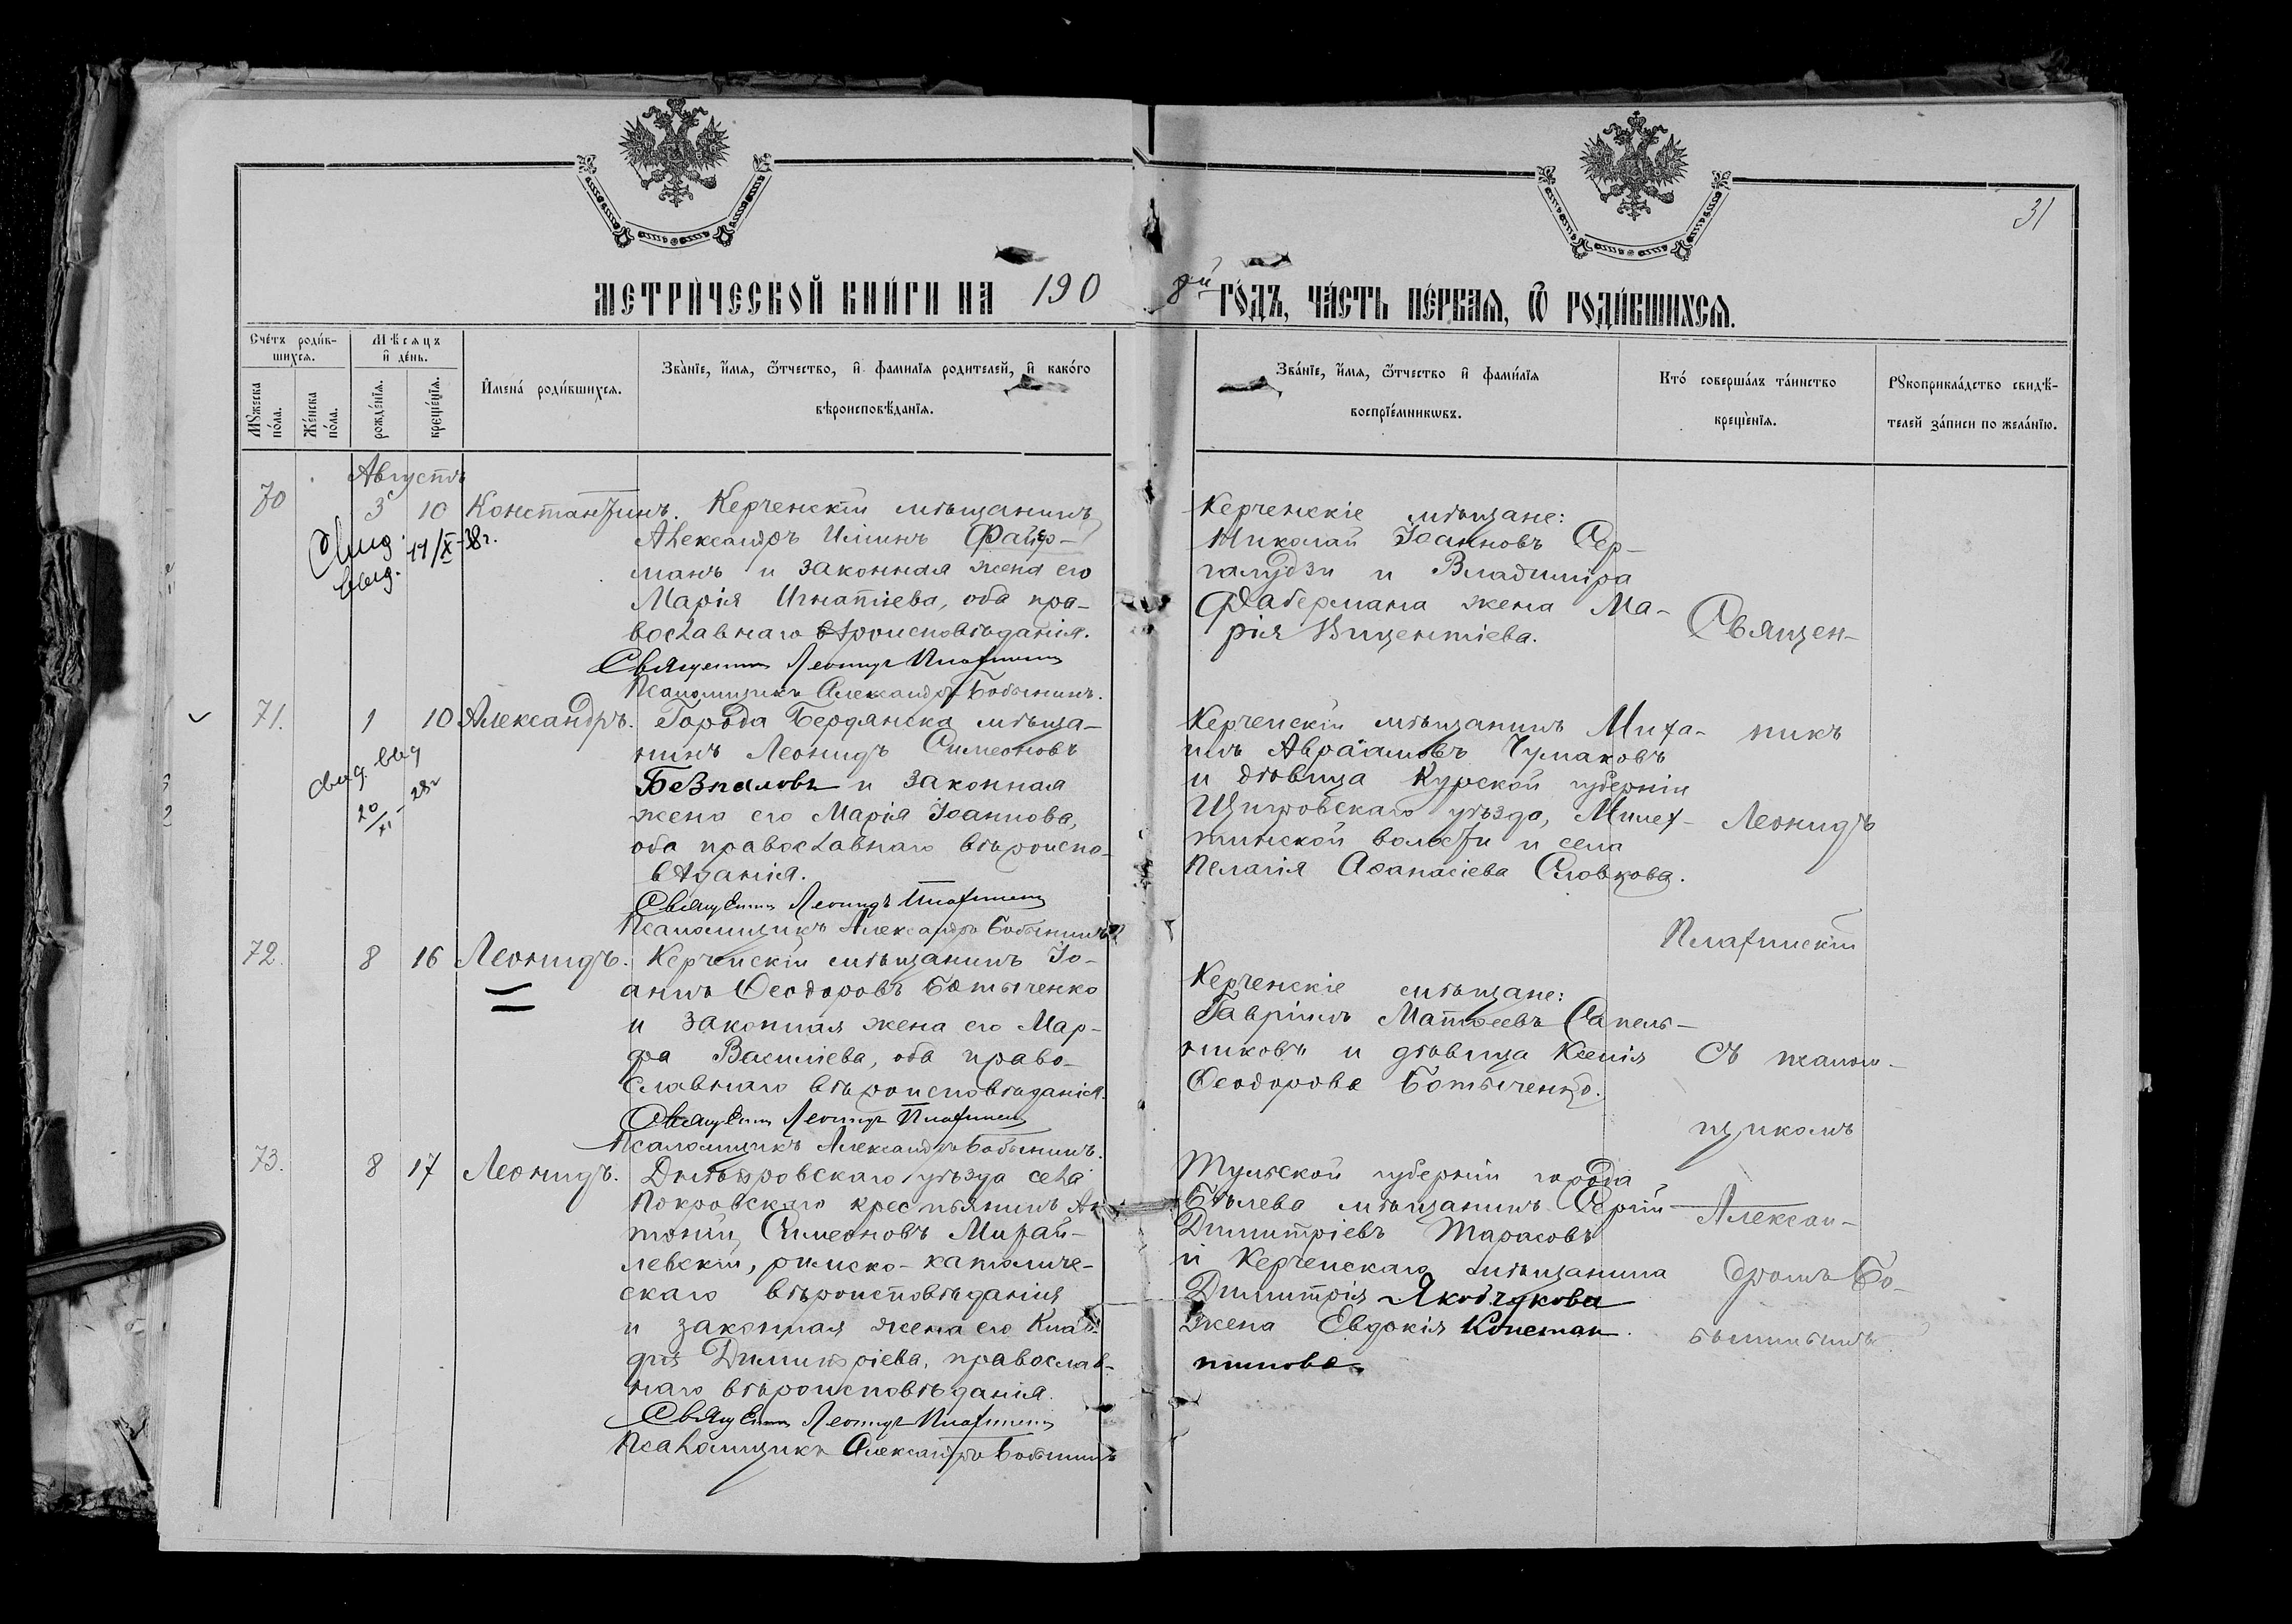 31
МЕТРИ́ЧЕСКОЙ КНИ́ГИ НА 190
8й ГО́ДЪ, ЧА́СТЬ ПЕ́РВАѦ, Ѿ РОДИ́ВШИХСѦ.
Сче́тъ роди́в-
шихсѧ.
Мꙋжеска
по́ла.
Же́нска
по́ла.
Мѣ́сѧцъ
и҆ де́нь.
рожде́нїѧ.
креще́нїѧ.
И҆мена̀ роди́вшихсѧ.
Зва́нїе, и҆́мѧ, ѻ҆́тчество, и҆ фами́лїѧ роди́телей, и҆ како́го
вѣроисповѣ́данїѧ.
Зва́нїе, и҆́мѧ, ѻ҆́тчество и҆ фами́лїѧ
воспрїе́мникѡвъ.
Кто́ соверша́лъ та́инство
креще́нїѧ.
Рꙋкоприкла́дство свидѣ́-
телей за́писи по жела́нїю.
Августъ
70
3
10
Константинъ.
Керченскій мѣщанинъ
Александръ Ильинъ Файер-
манъ и законная жена его
Марія Игнатіева, оба пра-
вославнаго вѣроисповѣданія.
Священникъ Леонидъ Платинскій
Псаломщикъ Александръ Бобынинъ.
выд.
38г.
Керченскіе мѣщане:
Николай Іоанновъ Сер-
галудзи и Владиміра
Фабермана жена Ма-
рія Викентіева.
Священ-
71.
1
10
Александръ.
Города Бердянска мѣща-
нинъ Леонидъ Симеоновъ
Безпаловъ и законная
жена его Марія Іоаннова,
оба православнаго вѣроиспо-
вѣданія.
Священникъ Леонидъ Платинскій
Псаломщикъ Александръ Бобынинъ
свид. выд
20/XI - 28г
Керченскій мѣщанинъ Миха-
илъ Авраамовъ Чумаковъ
и дѣвица Курской губерніи
Щигровскаго уѣзда, Милех-
тинской волости и села
Пелагія Аѳанасіева Словцова.
никъ
Леонидъ
Платинскій
72.
8
16
Леонидъ.
Керченскій мѣщанинъ Іо-
аннъ Ѳеодоровъ Ботыченко
и законная жена его Мар-
фа Василіева, оба право-
славнаго вѣроисповѣданія.
Священникъ Леонидъ Платинскій
Псаломщикъ Александръ Бобынинъ.
Керченскіе мѣщане:
Гавріилъ Матѳеевъ Сапель-
никовъ и дѣвица Ксенія
Ѳеодорова Ботыченко.
съ псалом-
щикомъ
73.
8
17
Леонидъ.
Днѣпровскаго уѣзда села
Покровскаго крестьянинъ Ан
тоній Симеоновъ Михай-
левскій, римско-католиче-
скаго вѣроисповѣданія
и законная жена его Клав-
дія Димитріева, православ-
наго вѣроисповѣданія.
Священникъ Леонидъ Платинскій
Псаломщикъ Александръ Бобынинъ
Тульской губерніи города
Бѣлева мѣщанинъ Сергій
Димитріевъ Тарасовъ
и Керченскаго мѣщанина
Димитрія Якобчукова
жена Евдокія Констан
тинова
Алексан-
дромъ Бо-
бынинымъ.